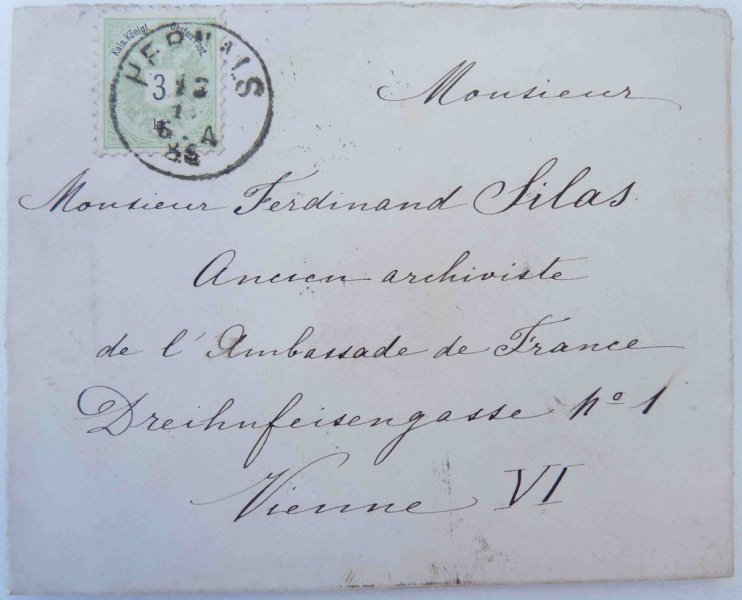 Kais. Königl. Oesterr. Post.
HERNALS
3
86
Monsieur
Monsieur Ferdinand Silas.
Ancien archiviste
de l'Ambassade de France
Dreihufeisengasse No 1
Vienne VI